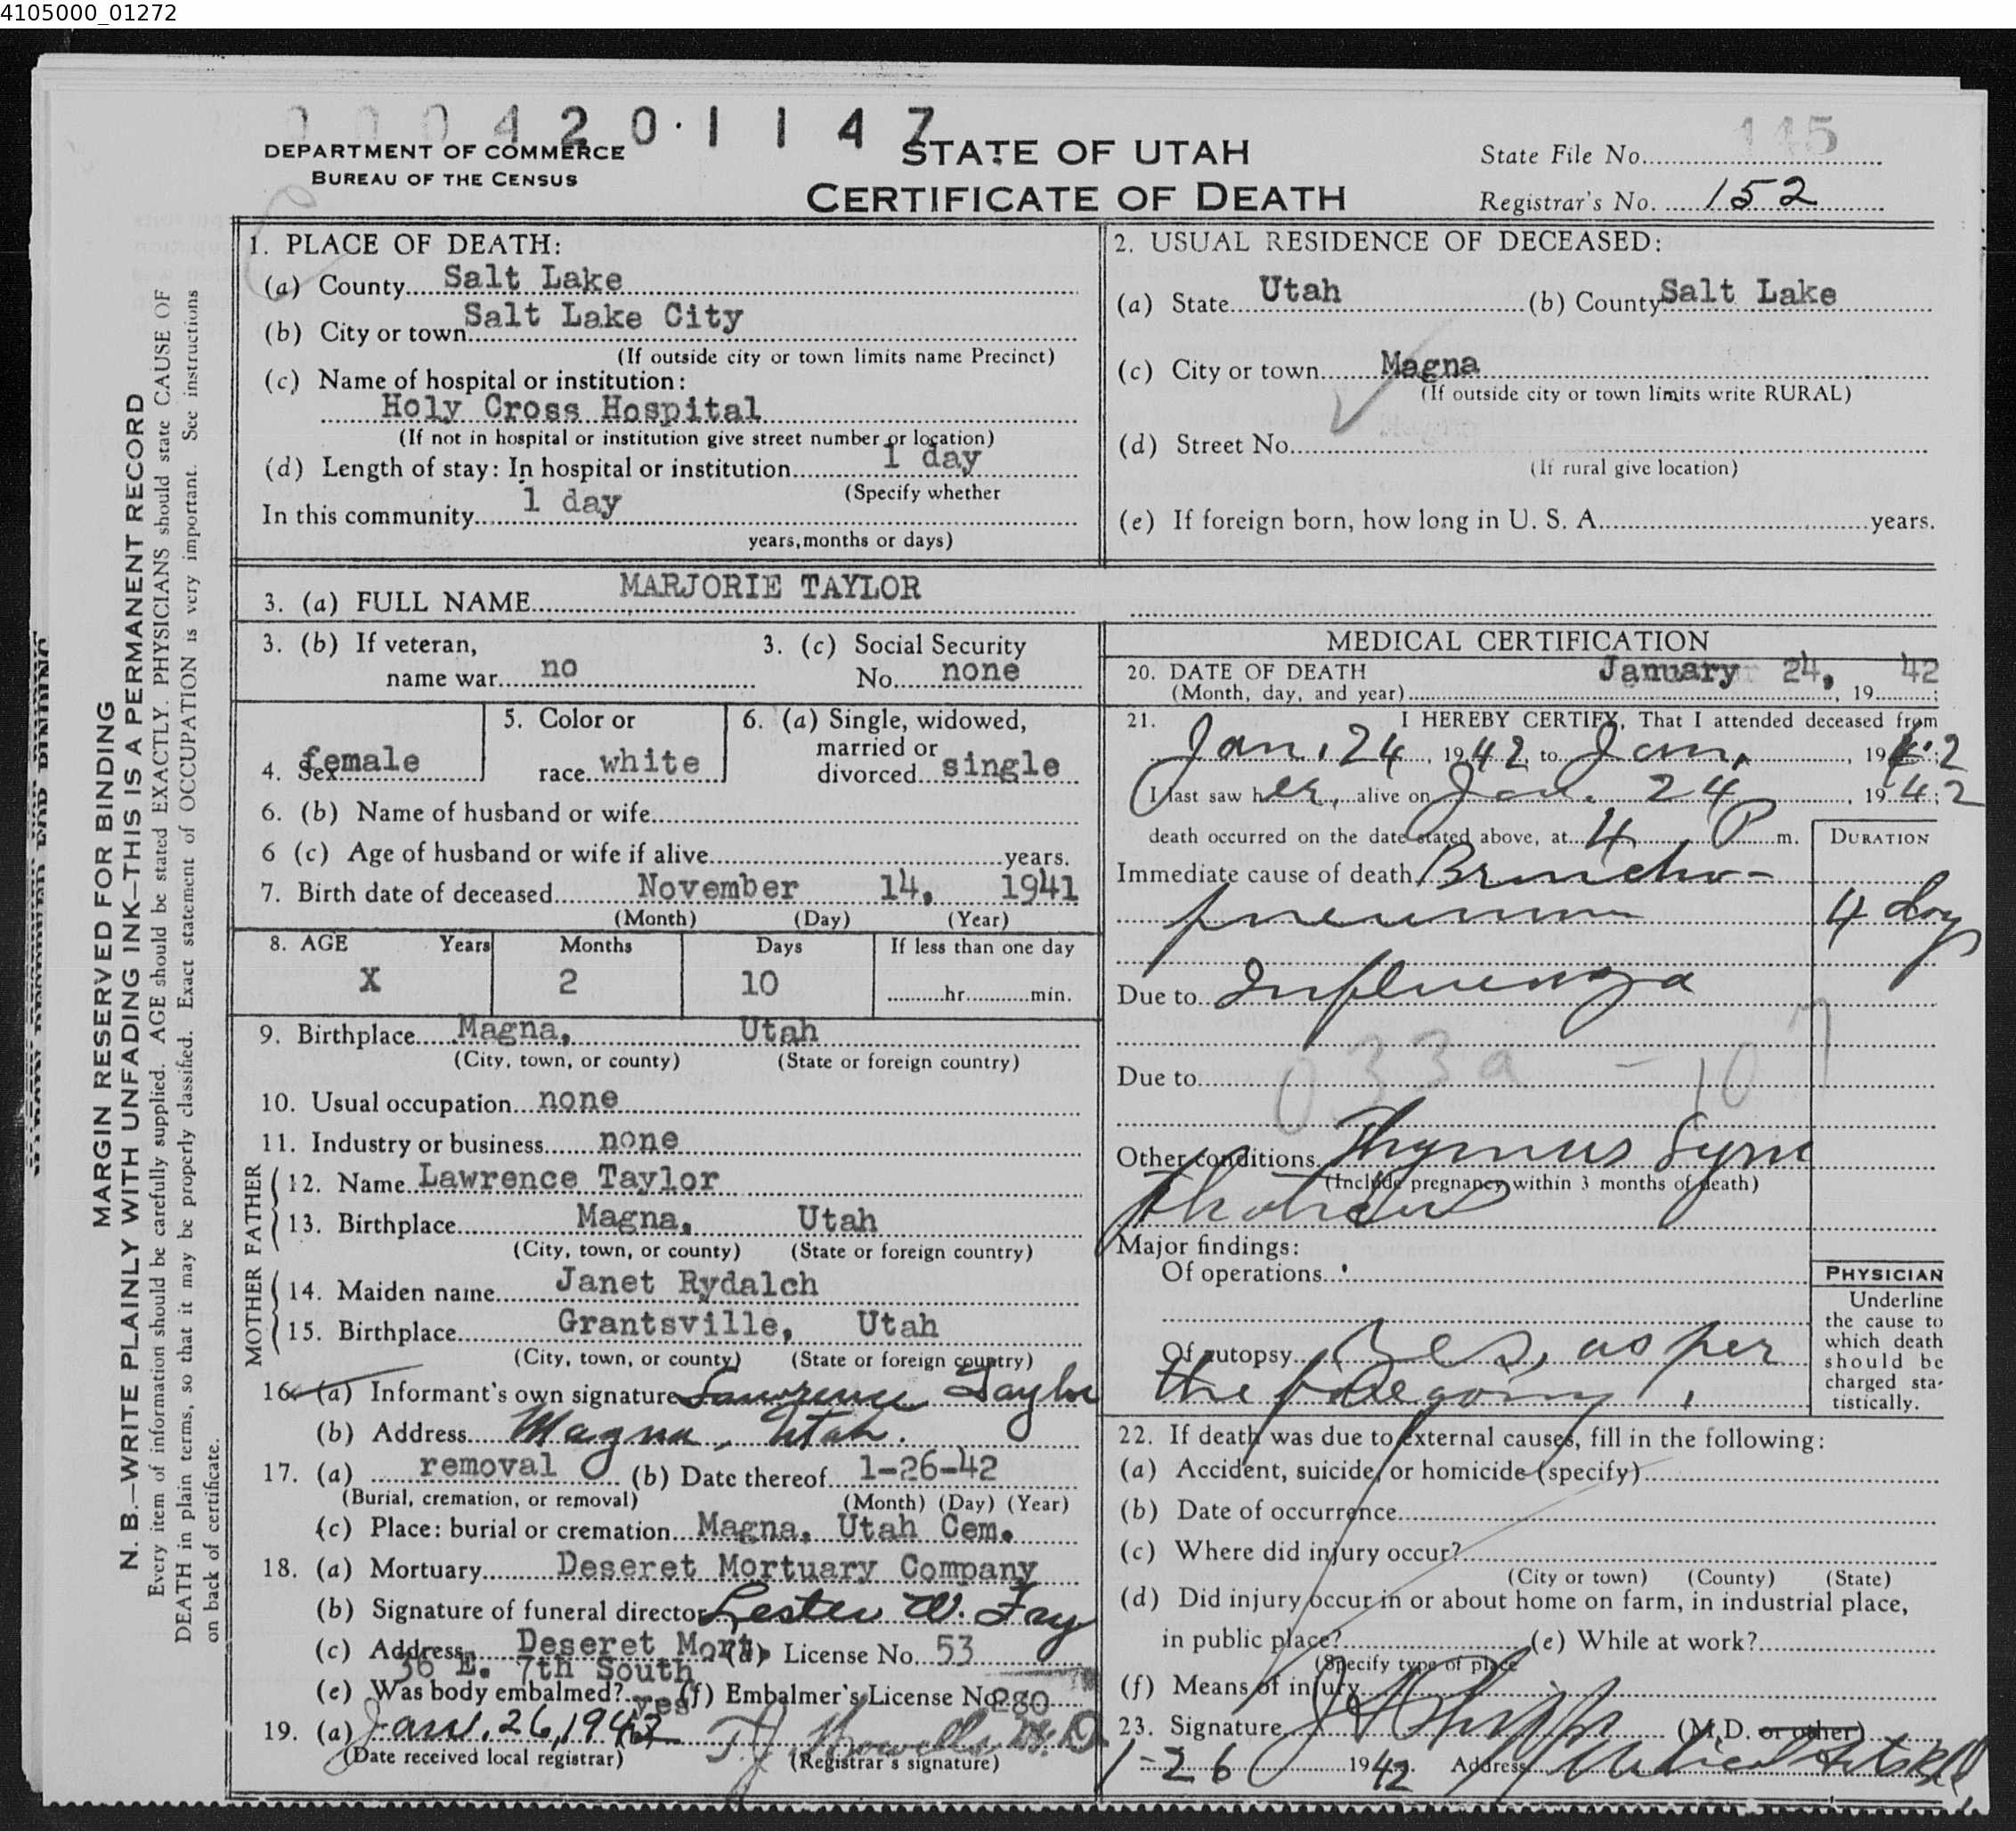 4105000_01272
0 0 0 4 2 0 · 1 1 4 7
DEPARTMENT OF COMMERCE
BUREAU OF THE CENSUS
STATE OF UTAH
CERTIFICATE OF DEATH
State File No. 145
Registrar's No. 152
MARGIN RESERVED FOR BINDING
N. B.—WRITE PLAINLY WITH UNFADING INK—THIS IS A PERMANENT RECORD
Every item of information should be carefully supplied. AGE should be stated EXACTLY. PHYSICIANS should state CAUSE OF
DEATH in plain terms, so that it may be properly classified. Exact statement of OCCUPATION is very important. See instructions
on back of certificate.
1. PLACE OF DEATH:
(a) County Salt Lake
(b) City or town Salt Lake City
(If outside city or town limits name Precinct)
(c) Name of hospital or institution:
Holy Cross Hospital
(If not in hospital or institution give street number or location)
(d) Length of stay: In hospital or institution 1 day
(Specify whether
In this community 1 day
years, months or days)
2. USUAL RESIDENCE OF DECEASED:
(a) State Utah (b) County Salt Lake
(c) City or town Magna
(If outside city or town limits write RURAL)
(d) Street No.
(If rural give location)
(e) If foreign born, how long in U. S. A. years.
3. (a) FULL NAME MARJORIE TAYLOR
3. (b) If veteran,
name war no
3. (c) Social Security
No. none
4. Sex female
5. Color or
race white
6. (a) Single, widowed,
married or
divorced single
6. (b) Name of husband or wife
6 (c) Age of husband or wife if alive years.
7. Birth date of deceased November 14, 1941
(Month) (Day) (Year)
8. AGE Years Months Days If less than one day
X 2 10 hr. min.
9. Birthplace Magna, Utah
(City, town, or county) (State or foreign country)
10. Usual occupation none
11. Industry or business none
FATHER
12. Name Lawrence Taylor
13. Birthplace Magna, Utah
(City, town, or county) (State or foreign country)
MOTHER
14. Maiden name Janet Rydalch
15. Birthplace Grantsville, Utah
(City, town, or county) (State or foreign country)
16. (a) Informant's own signature Lawrence Taylor
(b) Address Magna, Utah.
17. (a) removal (b) Date thereof 1-26-42
(Burial, cremation, or removal) (Month) (Day) (Year)
(c) Place: burial or cremation Magna, Utah Cem.
18. (a) Mortuary Deseret Mortuary Company
(b) Signature of funeral director Lester W. Fry
(c) Address Deseret Mort. (d) License No. 53
36 E. 7th South
(e) Was body embalmed? yes (f) Embalmer's License No. 280
19. (a) Jan. 26, 1942 T. J. Howells M. D.
(Date received local registrar) (Registrar's signature)
MEDICAL CERTIFICATION
20. DATE OF DEATH
(Month, day, and year) January 24, 19 42;
21. I HEREBY CERTIFY, That I attended deceased from
Jan. 24, 1942, to Jan., 1942;
I last saw her alive on Jan. 24, 1942;
death occurred on the date stated above, at 4 P m.
DURATION
Immediate cause of death Broncho-
pneumonia 4 days
Due to Influenza
033a - 107
Due to
Other conditions Thymus Lym
(Include pregnancy within 3 months of death)
Major findings:
Of operations
Of autopsy Yes, as per
the foregoing
PHYSICIAN
Underline
the cause to
which death
should be
charged sta-
tistically.
22. If death was due to external causes, fill in the following:
(a) Accident, suicide, or homicide (specify)
(b) Date of occurrence
(c) Where did injury occur?
(City or town) (County) (State)
(d) Did injury occur in or about home on farm, in industrial place,
in public place? (e) While at work?
(Specify type of place
(f) Means of injury
23. Signature (M.D. or other)
1-26 1942 Address